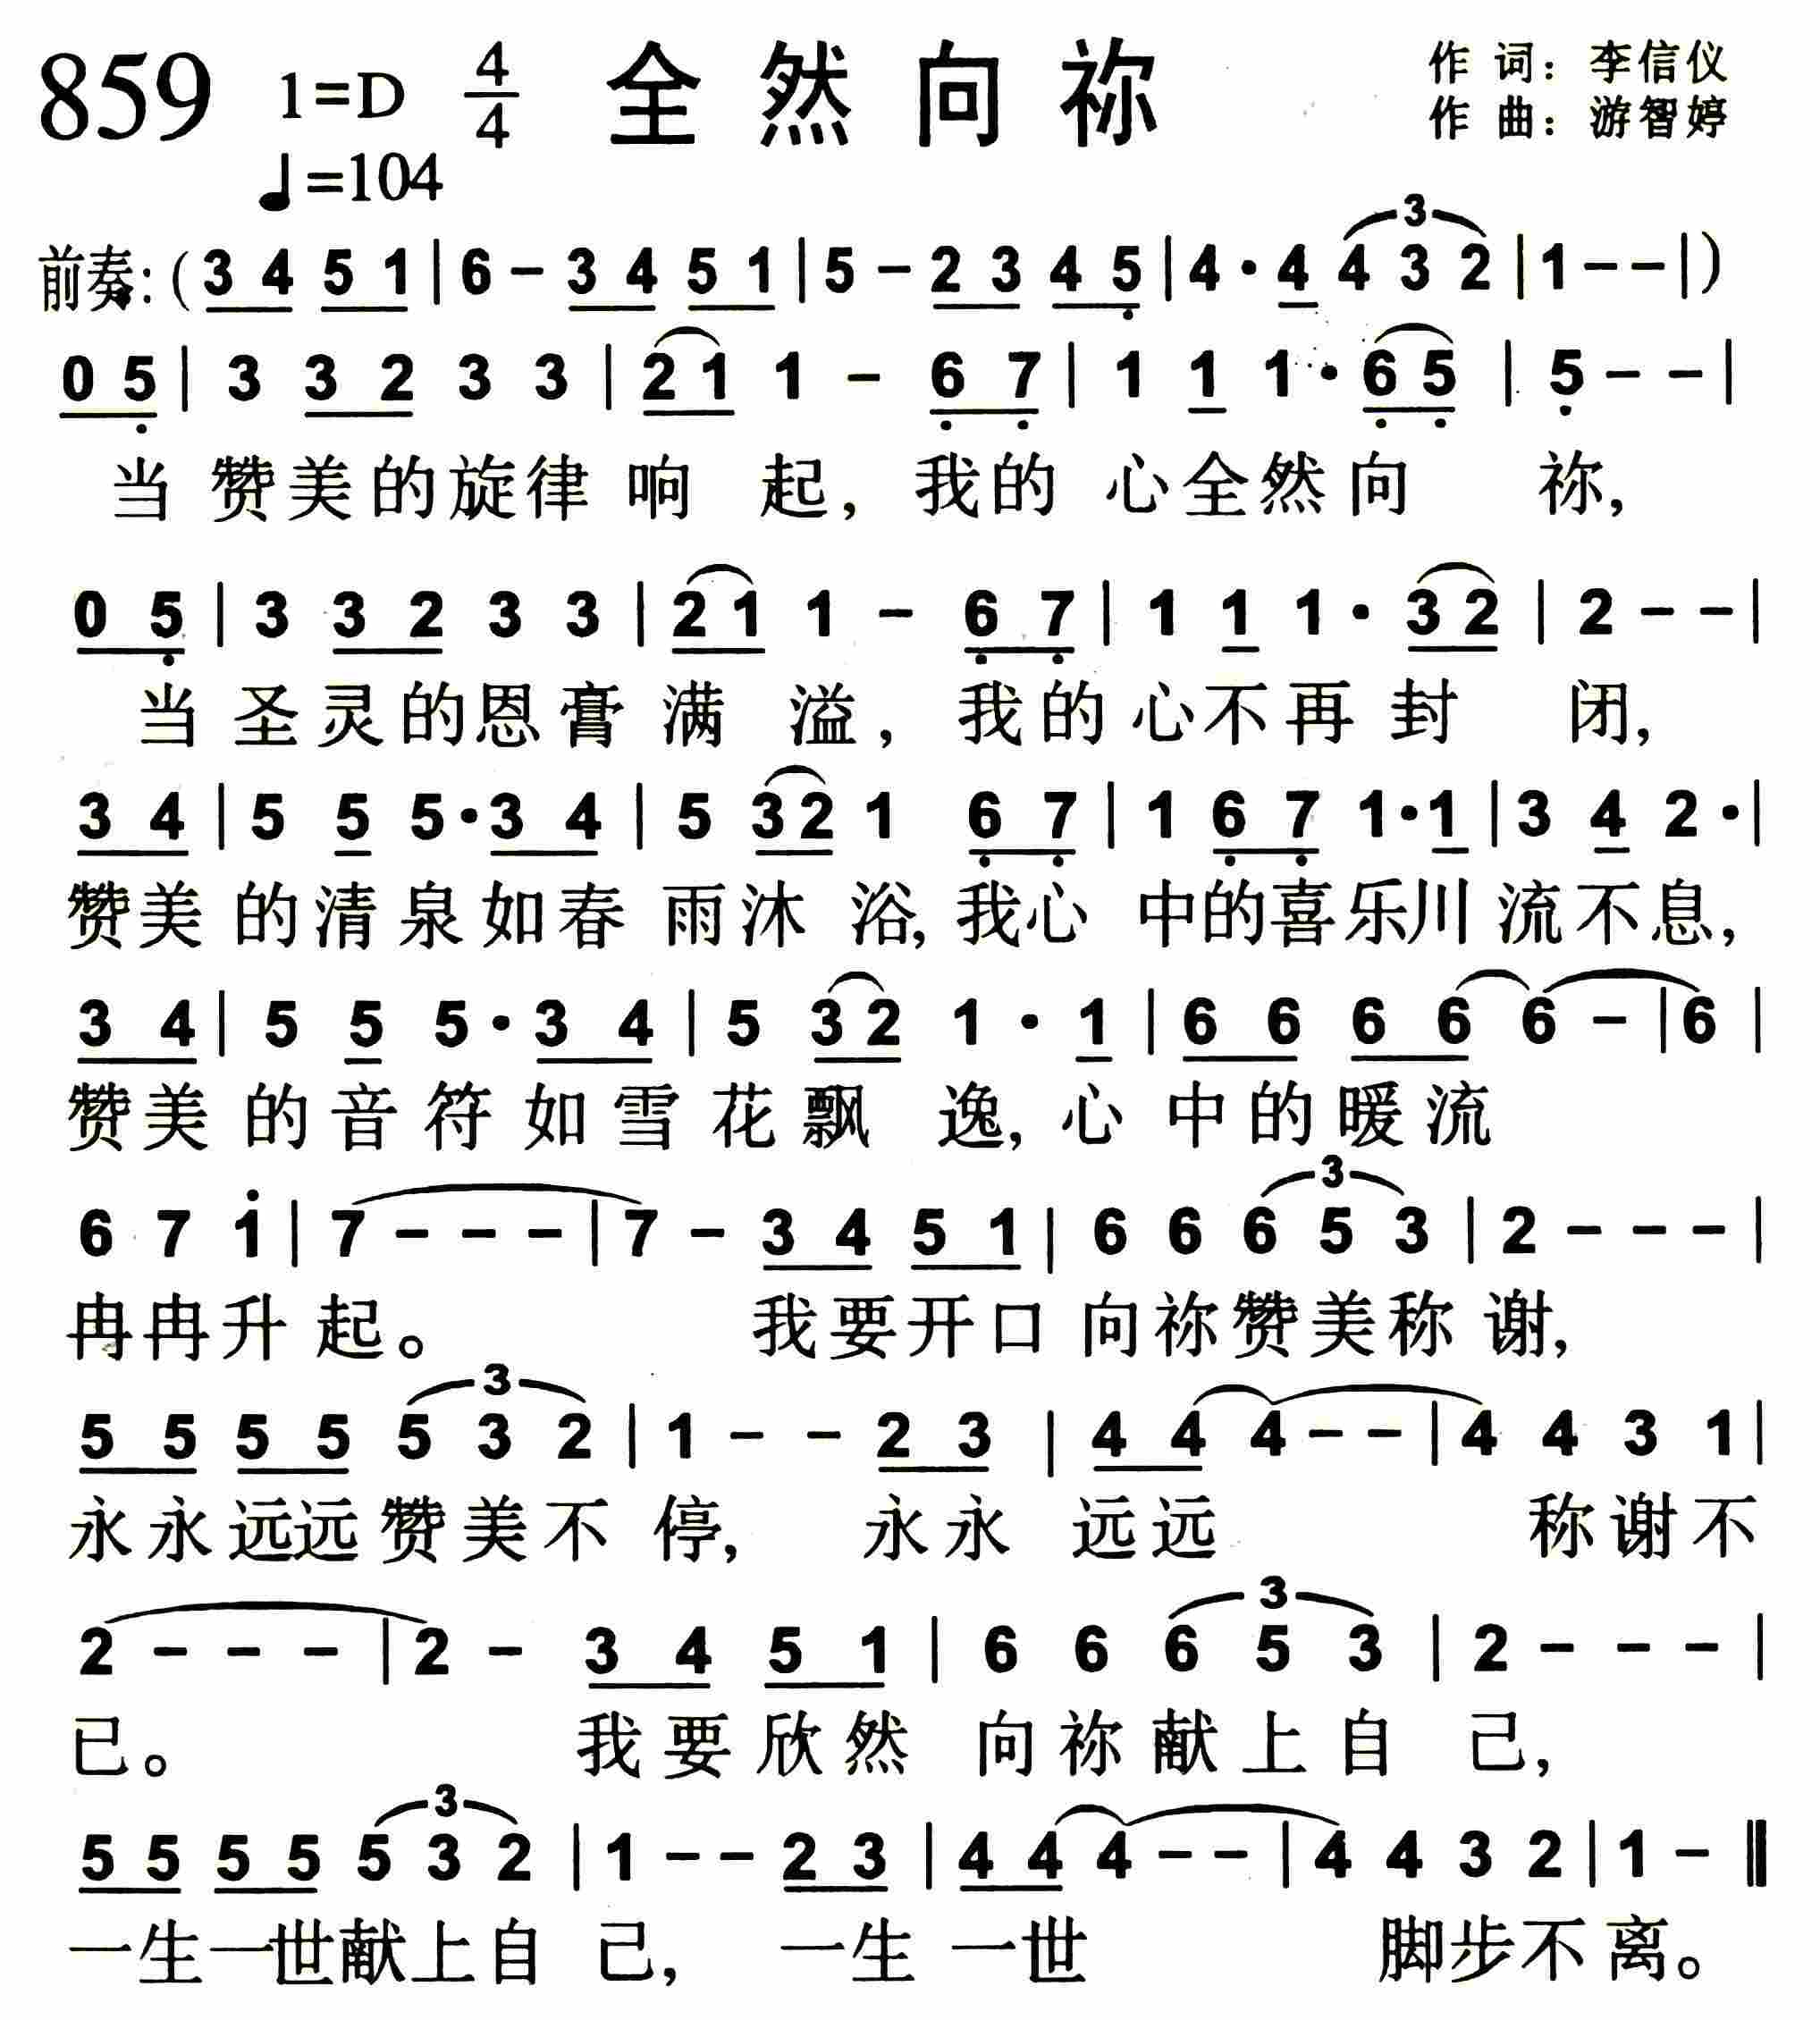 859 1=D 4/4 全然向祢 作 词：李信仪
♩=104 作 曲：游智婷
前奏：（3 4 5 1 | 6 - 3 4 5 1 | 5 - 2 3 4 5̣ | 4 · 4 4 3 2 | 1 - - |）
0 5̣ | 3 3 2 3 3 | 2 1 1 - 6̣ 7̣ | 1 1 1 · 6̣ 5̣ | 5̣ - - |
当 赞美的旋律 响 起，我的 心全然向 祢，
0 5̣ | 3 3 2 3 3 | 2 1 1 - 6̣ 7̣ | 1 1 1 · 3 2 | 2 - - |
当 圣灵的恩膏 满 溢，我的 心不再 封 闭，
3 4 | 5 5 5 · 3 4 | 5 3 2 1 6̣ 7̣ | 1 6̣ 7̣ 1 · 1 | 3 4 2 · |
赞美 的清泉如春 雨沐 浴，我心 中的喜乐川 流不息，
3 4 | 5 5 5 · 3 4 | 5 3 2 1 · 1 | 6 6 6 6 6 - | 6 |
赞美 的音符如雪 花飘 逸，心 中的暖流
6 7 1̇ | 7 - - - | 7 - 3 4 5 1 | 6 6 6 5 3 | 2 - - - |
冉冉升 起。 我要开口 向祢赞美称 谢，
5 5 5 5 5 3 2 | 1 - - 2 3 | 4 4 4 - - | 4 4 3 1 |
永永远远赞美不 停， 永永 远远 称谢不
2 - - - | 2 - 3 4 5 1 | 6 6 6 5 3 | 2 - - - |
已。 我要欣然 向祢献上自 己，
5 5 5 5 5 3 2 | 1 - - 2 3 | 4 4 4 - - | 4 4 3 2 | 1 - ‖
一生一世献上自 己， 一生 一世 脚步不离。